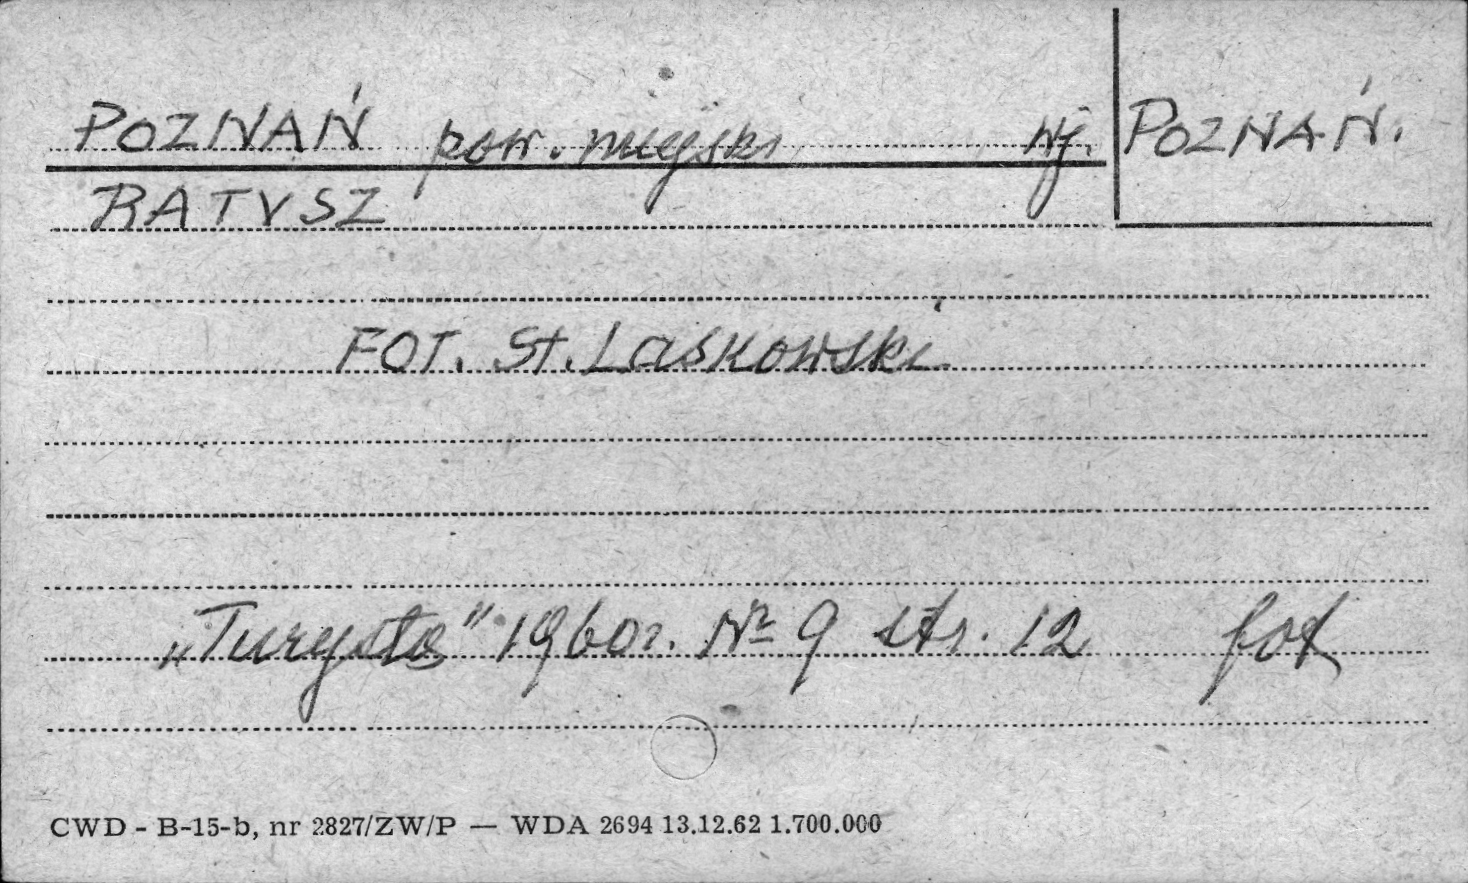 POZNAŃ pow. miejski wj. POZNAŃ.
RATUSZ
FOT. St. Laskowski
„Turysta" 1960r. Nr 9 str. 12 fot
CWD - B-15-b, nr 2827/ZW/P — WDA 2694 13.12.62 1.700.000